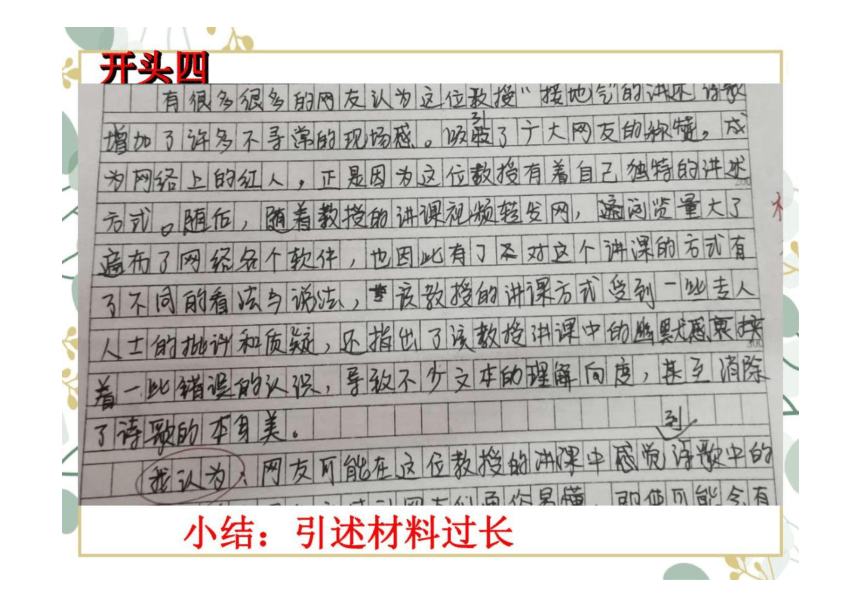 开头四
有很多很多的网友认为这位教授"接地气"的讲述诗歌
增加了许多不寻常的现场感。吸引了广大网友的称赞。成
为网络上的红人，正是因为这位教授有着自己独特的讲述
方式。随后，随着教授的讲课视频转发网，阅览量大了
遍布了网络各个软件，也因此有了对这个讲课的方式有
了不同的看法与说法，该教授的讲课方式受到一些专人
人士的批评和质疑，还指出了该教授讲课中的幽默感裹挟
着一些错误的认识，导致不少文本的理解向度，甚至消除
了诗歌的本身美。
到
我认为，网友可能在这位教授的讲课中感觉诗歌中的
小结：引述材料过长